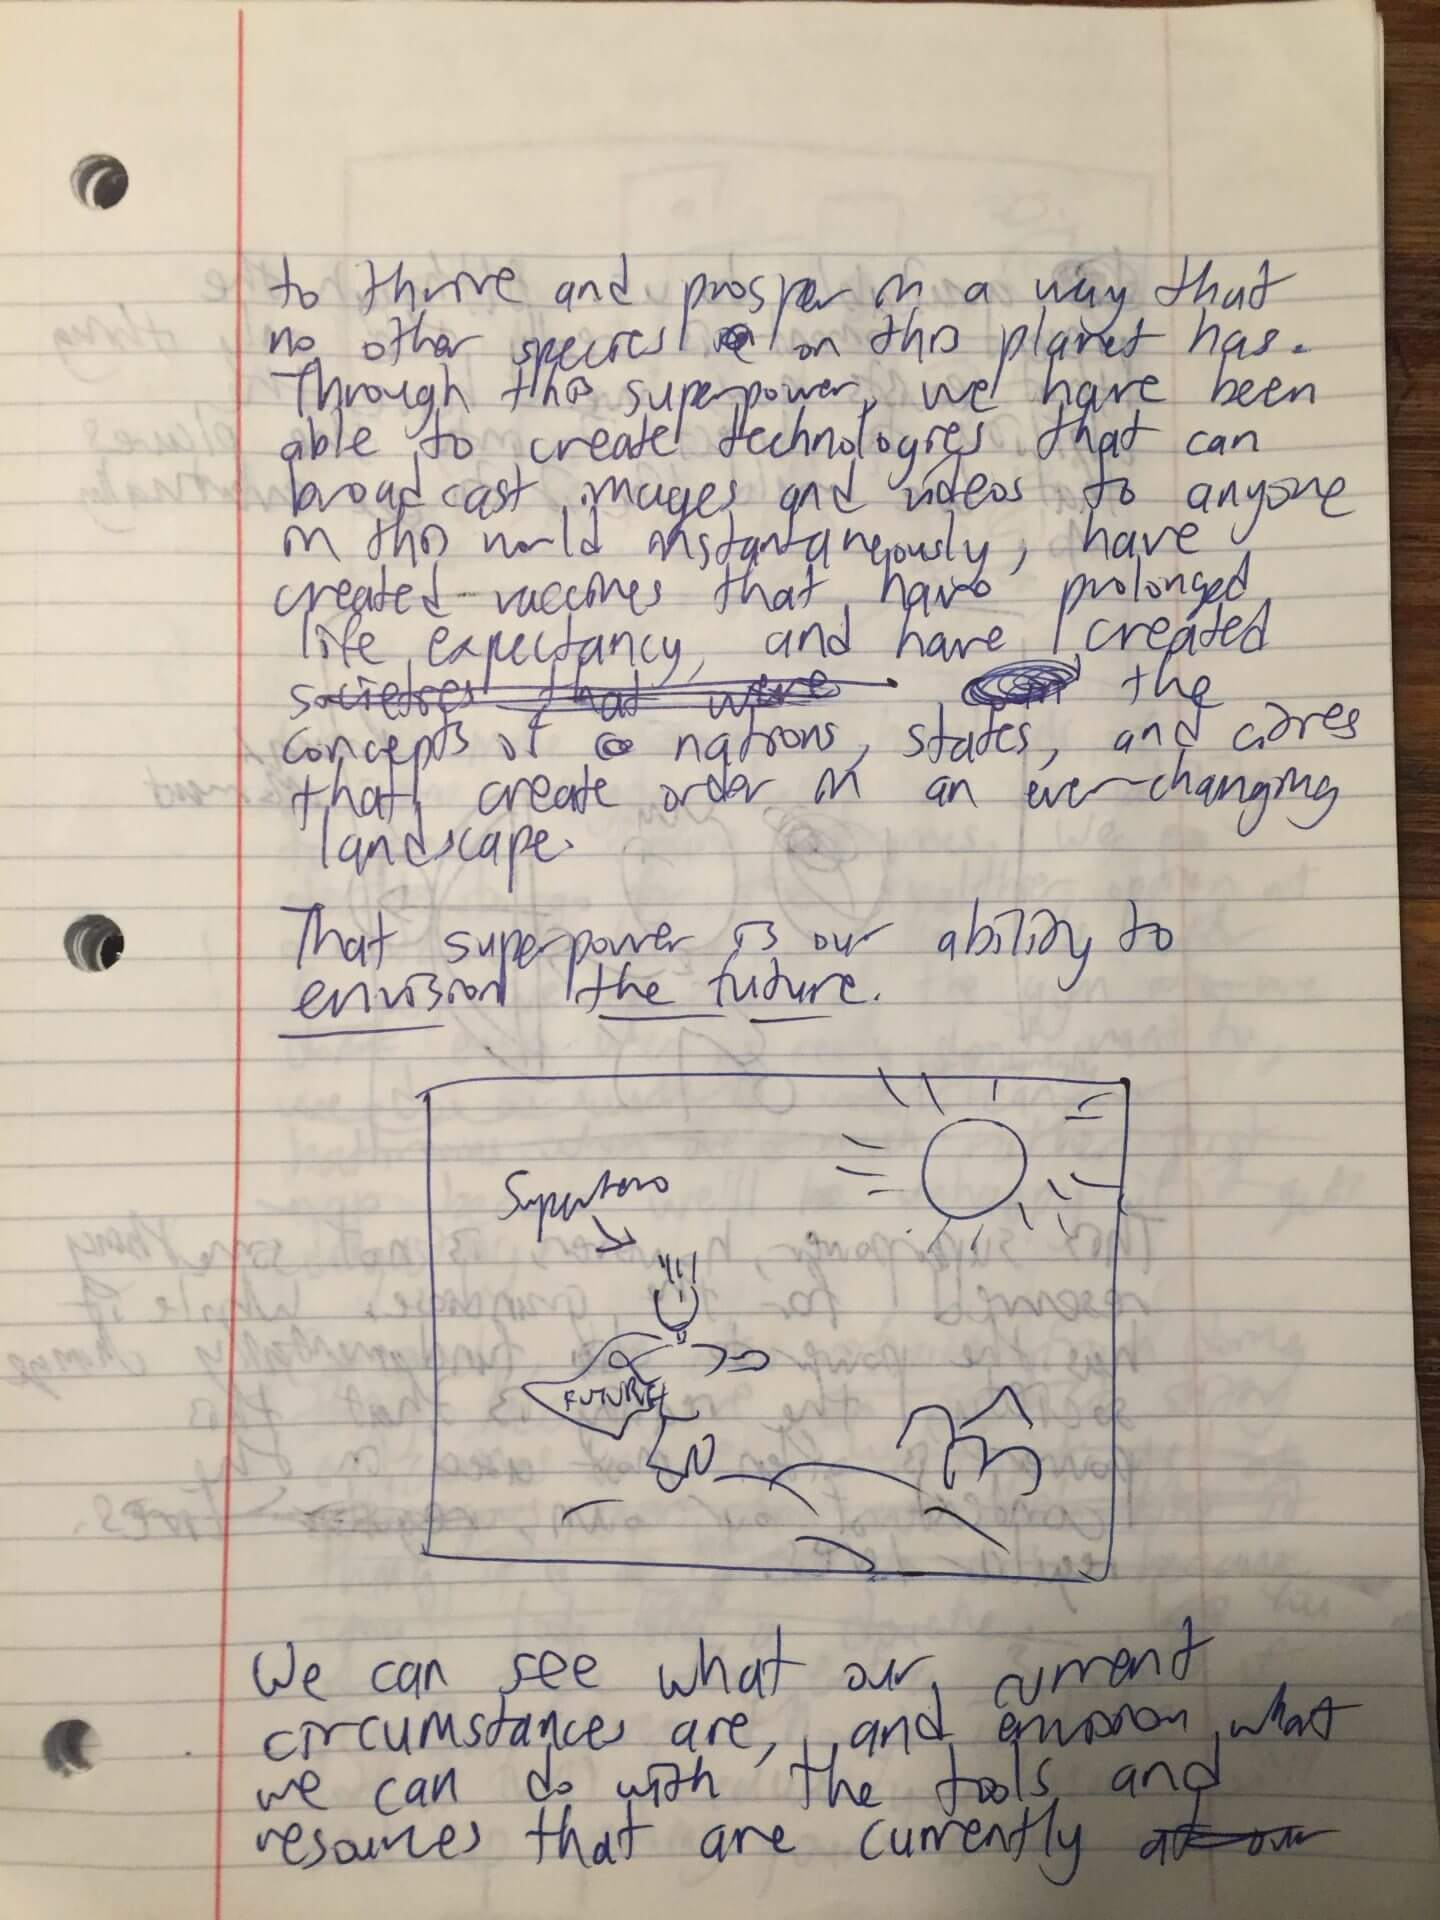 to thrive and prosper in a way that
no other species on this planet has.
Through this superpower, we have been
able to create technologies that can
broadcast images and videos to anyone
in this world instantaneously, have
created vaccines that have prolonged
life expectancy, and have created
societies that were the
concepts of nations, states, and cities
that create order in an ever-changing
landscape.
That superpower is our ability to
envision the future.
Superhero
FUTURE
We can see what our current
circumstances are, and envision what
we can do with the tools and
resources that are currently at our